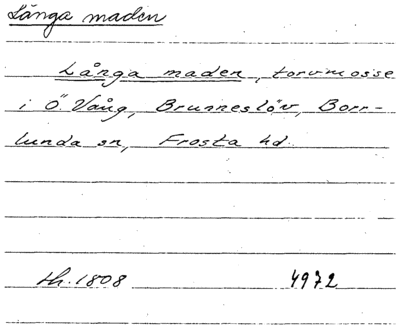 Långa maden
Långa maden, torvmosse
i Ö. Vång, Brunneslöv, Borr-
lunda sn, Frosta hd.
th. 1808 4972